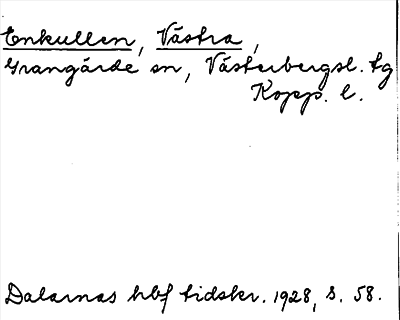 Enkullen, Västra,
Grangärde sn, Västerbergsl. tg
Kopp. l.
Dalarnas hbf tidskr. 1928, s. 58.